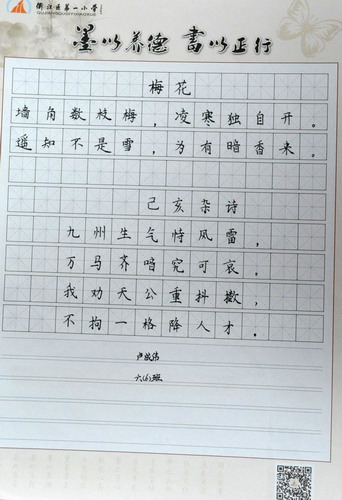 衢江区第一小学
QUJIANGQUDIYIXIAOXUE
墨以养德 書以正行
梅花
墙角数枝梅，凌寒独自开。
遥知不是雪，为有暗香来。
己亥杂诗
九州生气恃风雷，
万马齐喑究可哀。
我劝天公重抖擞，
不拘一格降人才。
六(6)班